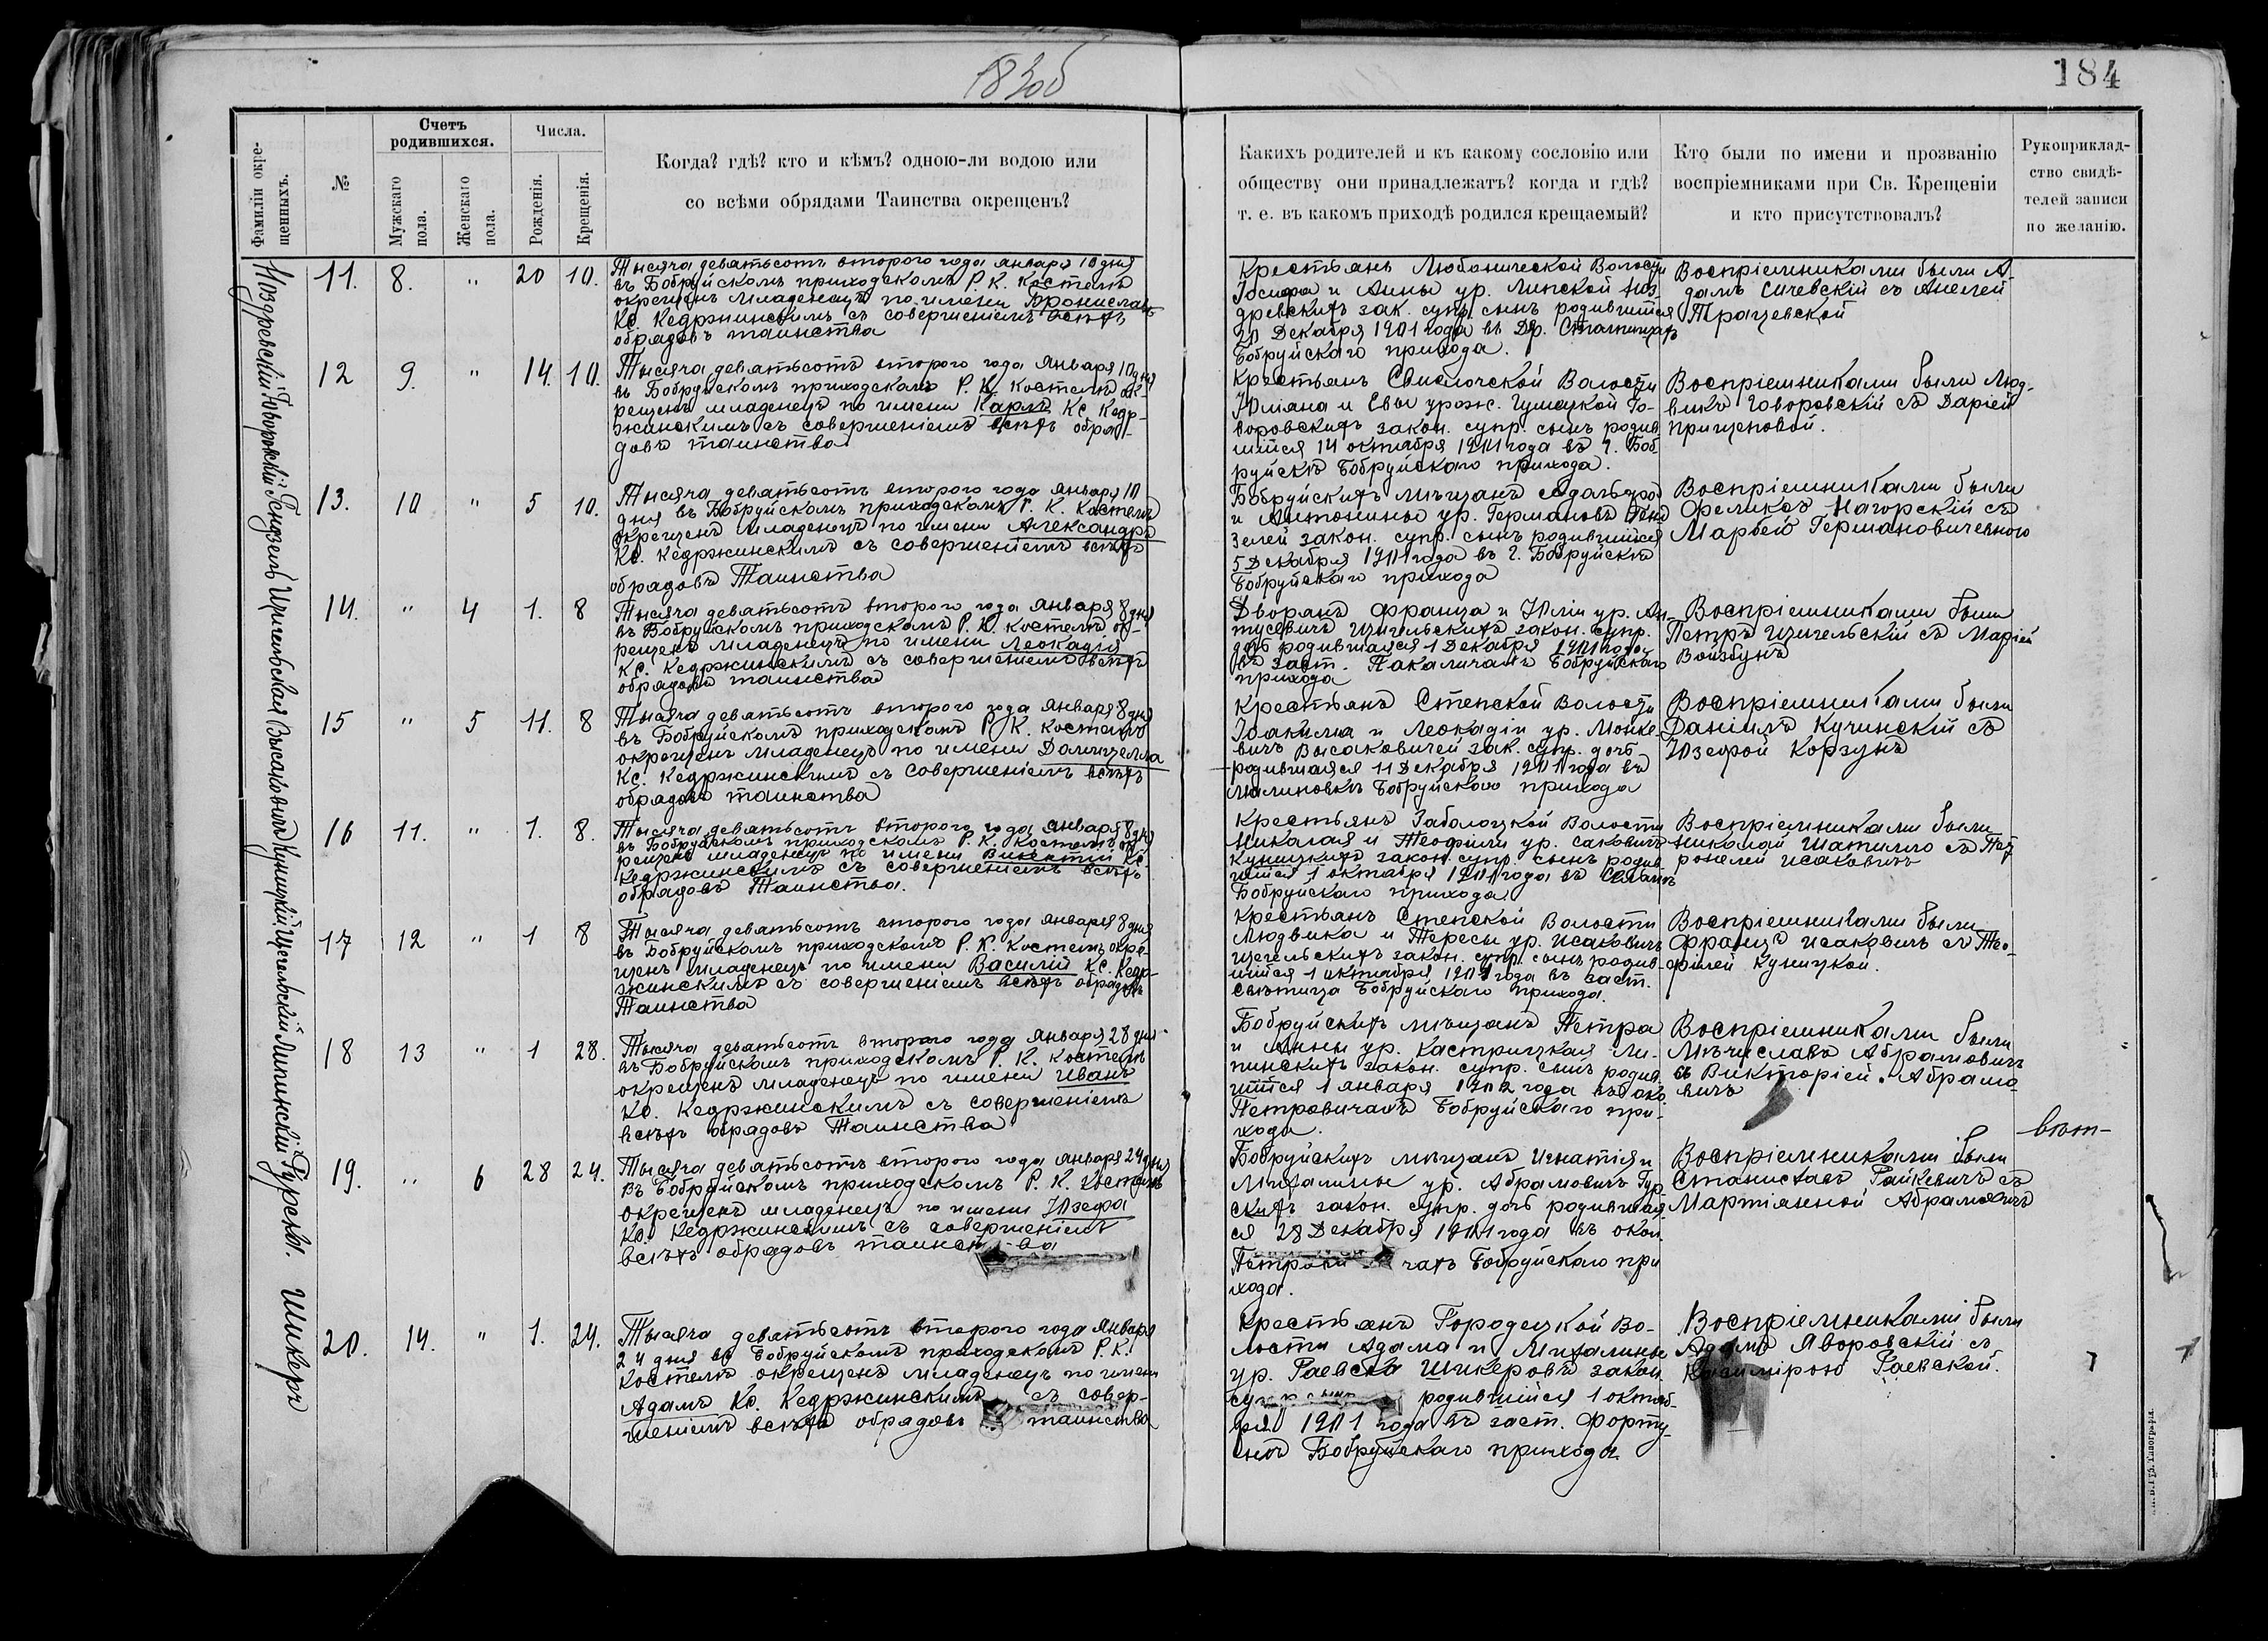 183об
184
Фамиліи окре-
щенныхъ.
№
Счетъ
родившихся.
Мужскаго
пола.
Женскаго
пола.
Числа.
Рожденія.
Крещенія.
Когда? гдѣ? кто и кѣмъ? одною-ли водою или
со всѣми обрядами Таинства окрещенъ?
Какихъ родителей и къ какому сословію или
обществу они принадлежатъ? когда и гдѣ?
т. е. въ какомъ приходѣ родился крещаемый?
Кто были по имени и прозванію
воспріемниками при Св. Крещеніи
и кто присутствовалъ?
Рукоприклад-
ство свидѣ-
телей записи
по желанію.
Ноздревскій
11. 8. " 20 10.
Тысяча девятьсотъ второго года января 10 дня
въ Бобруйскомъ приходскомъ Р. К. Костелѣ
окрещенъ младенецъ по имени Брониславъ
Кс. Кедржинскимъ съ совершеніемъ всѣхъ
обрядовъ таинства
Крестьянъ Любонической Волости
Іосифа и Анны ур. Липской Ноз-
древскихъ зак. супр. сынъ родившійся
20 Декабря 1901 года въ Др.
Бобруйскаго прихода.
Воспріемниками были А-
дамъ Сичевскій съ Анелей
Трацевской
Говоровскій
12 9. " 14. 10.
Тысяча девятьсотъ второго года Января 10 дня
въ Бобруйскомъ приходскомъ Р. К. Костелѣ ок-
рещенъ младенецъ по имени Карлъ Кс. Кедр-
жинскимъ съ совершеніемъ всѣхъ обря-
довъ таинства
Крестьянъ Свислочской Волости
Юліана и Евы урож. Гумецкой Го-
воровскихъ закон. супр. сынъ родив
шійся 14 октября 1901 года въ г. Боб
руйскѣ Бобруйскаго прихода.
Воспріемниками были Люд-
викъ Говоровскій съ Даріей
Прищеновой.
Гензель
13. 10 " 5 10.
Тысяча девятьсотъ второго года Января 10
дня въ Бобруйскомъ приходскомъ Р. К. Костелѣ
окрещенъ младенецъ по имени Александръ
Кс. Кедржинскимъ съ совершеніемъ всѣхъ
обрядовъ Таинства
Бобруйскихъ мѣщанъ
и Антонины ур. Германовъ Ген
зелей закон. супр. сынъ родившійся
5 Декабря 1901 года въ г. Бобруйскѣ
Бобруйскаго прихода
Воспріемниками были
Феликсъ Нагорскій съ
Маріею Германовичевною
14. " 4 1. 8
Тысяча девятьсотъ второго года января 8 дня
въ Бобруйскомъ приходскомъ Р. К. костелѣ ок-
рещенъ младенецъ по имени Леокадія
Кс. Кедржинскимъ съ совершеніемъ всѣхъ
обрядовъ таинства
Дворянъ Франца и Юліи ур. Ан-
тусевичъ закон. супр.
дочь родившаяся 1 Декабря 1901 года
въ заст. Пакаличахъ Бобруйскаго
прихода
Воспріемниками были
Петръ съ Маріей
Войзбунъ
Высаковичъ
15 " 5 11. 8
Тысяча девятьсотъ второго года января 8 дня
въ Бобруйскомъ приходскомъ Р. К. Костелѣ
окрещенъ младенецъ по имени Домицелла
Кс. Кедржинскимъ съ совершеніемъ всѣхъ
обрядовъ таинства
Крестьянъ Степской Волости
Іоакима и Леокадіи ур.
вичъ Высаковичей зак. супр. дочь
родившаяся 11 Декабря 1901 года въ
Малиновкѣ Бобруйскаго прихода
Воспріемниками были
Даніилъ Кучинскій съ
Юзефой Корзунъ
Куницкій
16 11. " 1. 8.
Тысяча девятьсотъ второго года января 8 дня
въ Бобруйскомъ приходскомъ Р. К. Костелѣ ок-
рещенъ младенецъ по имени Викентій Кс.
Кедржинскимъ съ совершеніемъ всѣхъ
обрядовъ Таинства.
Крестьянъ Заболоцкой Волости
Николая и Теофили ур. саковичъ
Куницкихъ закон. супр. сынъ родив
шійся 1 октября 1901 года въ
Бобруйскаго прихода
Воспріемниками были
николай Шатилло съ Пет
ронелей Исаковичъ
Щегельскій
17 12 " 1 8
Тысяча девятьсотъ второго года января 8 дня
въ Бобруйскомъ приходскомъ Р. К. Костелѣ окре-
щенъ младенецъ по имени Василій Кс. Кедр-
жинскимъ съ совершеніемъ всѣхъ обрядовъ
Таинства
Крестьянъ Степской Волости
Людвика и Тересы ур. Исаковичъ
щегельскихъ закон. супр. сынъ родив-
шійся 1 октября 1901 года въ заст.
Бобруйскаго прихода.
Воспріемниками были
Францъ Исаковичъ съ Тео-
филей Куницкой.
Липинскій
18 13 " 1 28.
Тысяча девятьсотъ второго года Января 28 дня
въ Бобруйскомъ приходскомъ Р. К. Костелѣ
окрещенъ младенецъ по имени Иванъ
Кс. Кедржинскимъ съ совершеніемъ
всѣхъ обрядовъ Таинства
Бобруйскихъ мѣщанъ Петра
и Анны ур. Кастрицкая Ли-
пинскихъ закон. супр. сынъ родив
шійся 1 января 1902 года въ око.
Петровичахъ Бобруйскаго при-
хода.
Воспріемниками были
Мѣчиславъ Абрамовичъ
съ Викторіей Абрамо
вичъ
Гурская
19. " 6 28 24.
Тысяча девятьсотъ второго года января 24 дня
въ Бобруйскомъ приходскомъ Р. К. Костелѣ
окрещенъ младенецъ по имени Юзефа
Кс. Кедржинскимъ съ совершеніемъ
всѣхъ обрядовъ таинства
Бобруйскихъ мѣщанъ Игнатія и
Михалины ур. Абрамовичъ Гур
скихъ закон. супр. дочь родившая
ся 28 Декабря 1901 года въ окол.
Петровичахъ Бобруйскаго при
хода.
Воспріемниками были
Станиславъ Райкевичъ съ
Мартіанной Абрамовичъ
Шикеръ
20. 14. " 1. 24.
Тысяча девятьсотъ второго года Января
24 дня въ Бобруйскомъ приходскомъ Р. К.
Костелѣ окрещенъ младенецъ по имени
Адамъ Кс. Кедржинскимъ съ совер-
шеніемъ всѣхъ обрядовъ таинства
Крестьянъ Городецкой Во-
лости Адама и Михалины
ур. Раевска Шикеровъ закон.
супр сынъ родившійся 1 октяб-
ря 1901 года въ заст.
Бобруйскаго прихода.
Воспріемниками были
Адамъ Яворовскій съ
Казимірою Раевской.